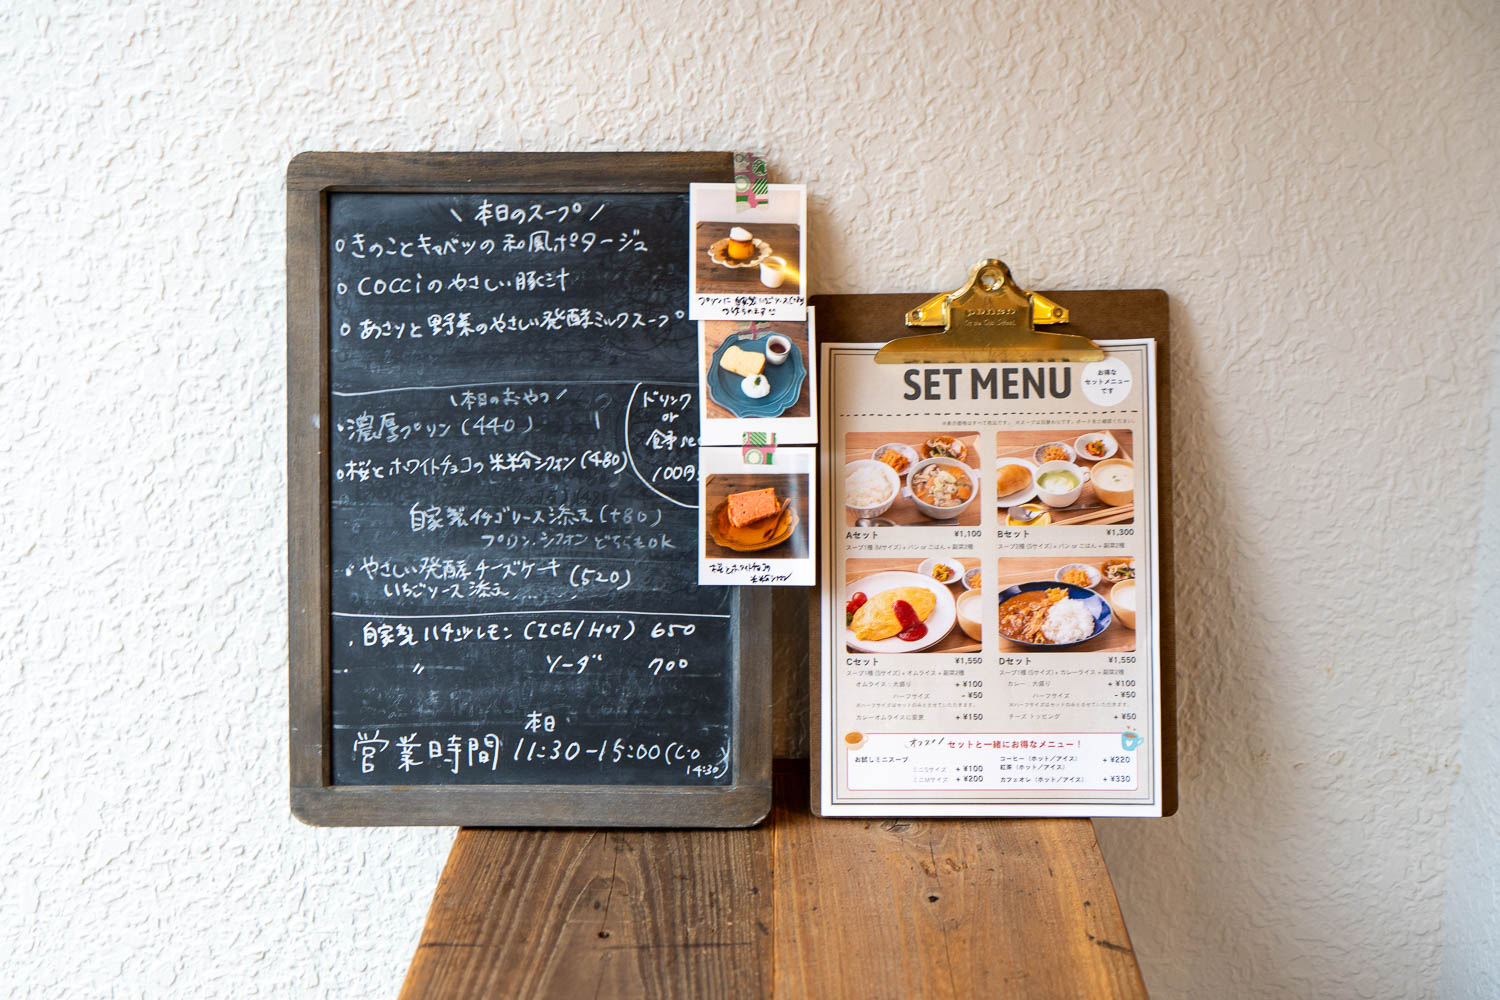 \ 本日のスープ /
○ きのことキャベツの和風ポタージュ
○ COCCiのやさしい豚汁
○ あさりと野菜のやさしい発酵ミルクスープ
\本日のおやつ/
濃厚プリン (440)
桜とホワイトチョコの米粉シフォン (480)
自家製イチゴソース添え (+80)
プリン.シフォン どちらもOK
やさしい発酵チーズケーキ (520)
いちごソース添え
ドリンク
or
食事
100円
自家製ハチミツレモン (ICE/HOT) 650
〃 ソーダ 700
本日
営業時間 11:30-15:00 (L.O
14:30)
プリンに自家製いちごソース
つけられます
桜とホワイトチョコの
米粉シフォン
SET MENU
お得な
セットメニュー
です
※表示価格はすべて税込です。 ※スープは日替わりです。ボードをご確認ください。
Aセット ¥1,100
スープ1種 (Mサイズ) + パン or ごはん + 副菜2種
Bセット ¥1,300
スープ2種 (Sサイズ) + パン or ごはん + 副菜2種
Cセット ¥1,550
スープ1種 (Sサイズ) + オムライス + 副菜2種
オムライス:大盛り + ¥100
ハーフサイズ - ¥50
※ハーフサイズはセットのみとさせていただきます。
カレーオムライスに変更 + ¥150
Dセット ¥1,550
スープ1種 (Sサイズ) + カレーライス + 副菜2種
カレー:大盛り + ¥100
ハーフサイズ - ¥50
※ハーフサイズはセットのみとさせていただきます。
チーズ トッピング + ¥50
セットと一緒にお得なメニュー!
お試しミニスープ
ミニSサイズ + ¥100
ミニMサイズ + ¥200
コーヒー (ホット/アイス) + ¥220
紅茶 (ホット/アイス)
カフェオレ (ホット/アイス) + ¥330